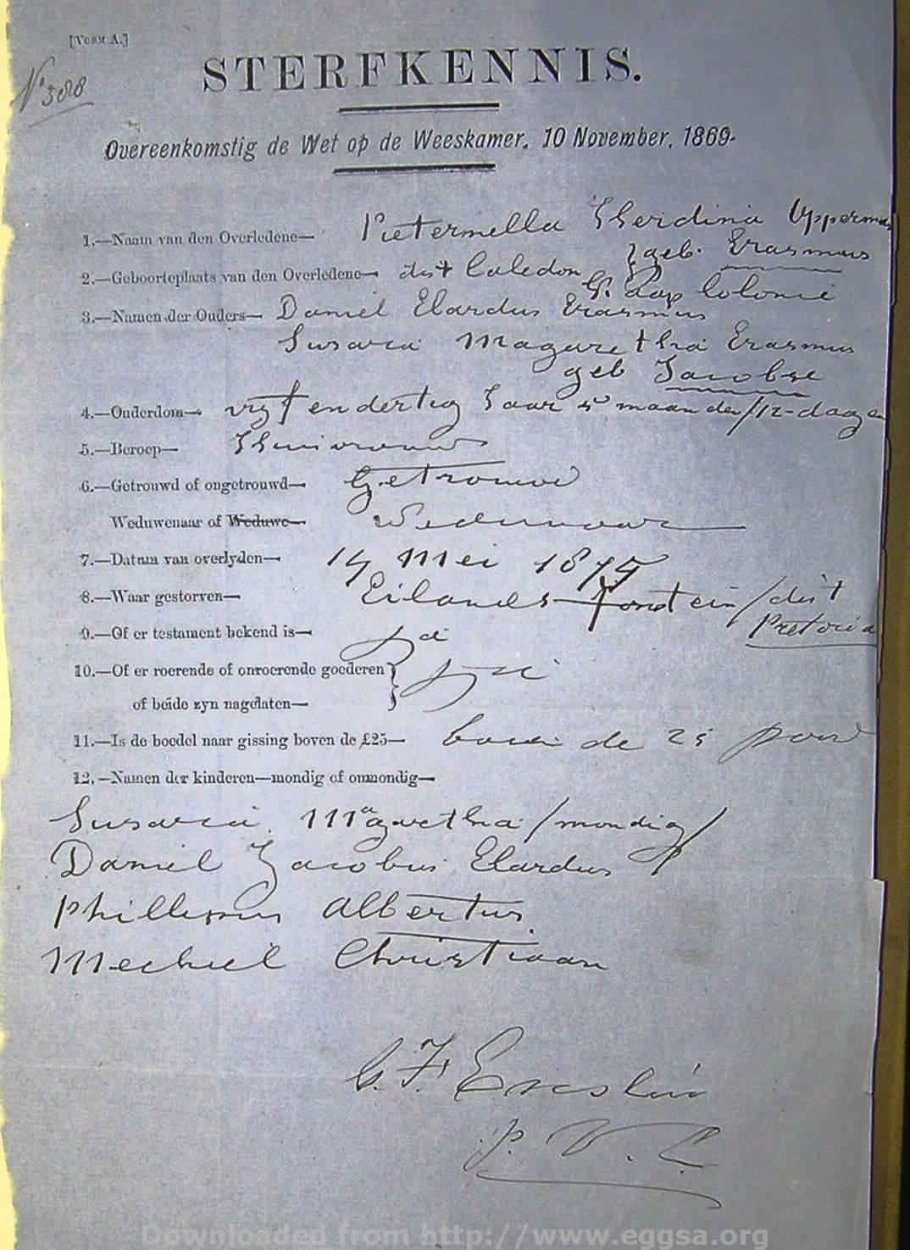 [VORM A.]
No 388
STERFKENNIS.
Overeenkomstig de Wet op de Weeskamer, 10 November, 1869.
1.—Naam van den Overledene— Pieternella Gherdina Opperman
geb. Erasmus
2.—Geboorteplaats van den Overledene— dist Caledon
Kaap Colonie
3.—Namen der Ouders— Daniel Elardus Erasmus
Susara Magaretha Erasmus
geb Jacobse
4.—Ouderdom— vyf en dertig Jaar 5 maanden/12-dagen
5.—Beroep— Huisvrouw
6.—Getrouwd of ongetrouwd— Getrouwd
Weduwenaar of Weduwe— Weduwnaar
7.—Datum van overlyden— 14 Mei 1875
8.—Waar gestorven— Eilandsfontein/dist
Pretoria
9.—Of er testament bekend is— Ja
10.—Of er roerende of onroerende goederen
of beide zyn nagelaten— Ja
11.—Is de boedel naar gissing boven de £25— boven de 25 pond
12.—Namen der kinderen—mondig of onmondig—
Susara Magaretha /mondig/
Daniel Jacobus Elardus
Phillippus Albertus
Mechiel Christiaan
Downloaded from http://www.eggsa.org